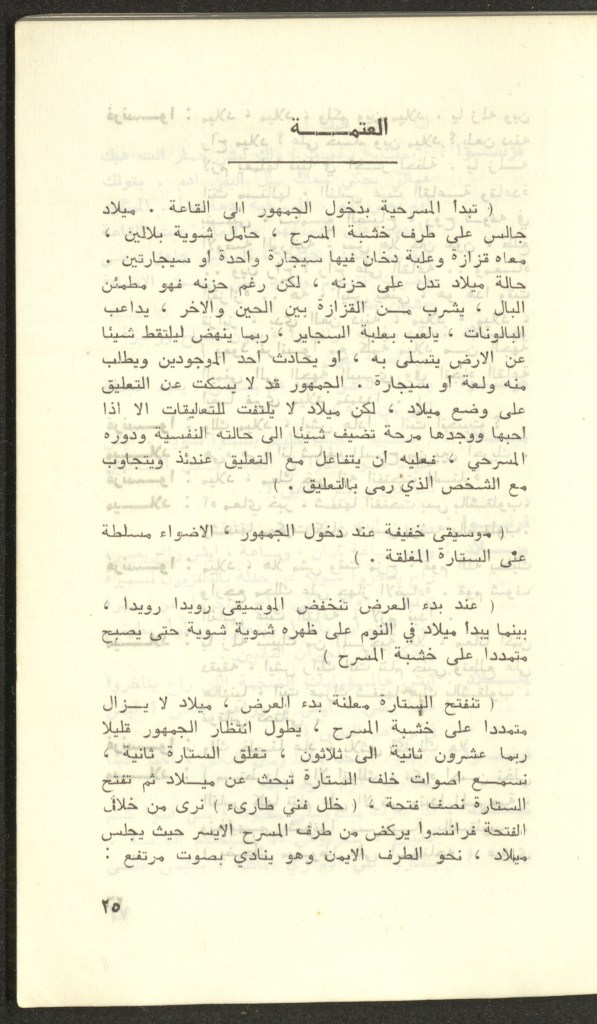 العتمـــــة
( تبدأ المسرحية بدخول الجمهور الى القاعة . ميلاد
جالس على طرف خشبة المسرح ، حامل شوية بلالين ،
معاه قزازة وعلبة دخان فيها سيجارة واحدة أو سيجارتين .
حالة ميلاد تدل على حزنه ، لكن رغم حزنه فهو مطمئن
البال ، يشرب مــن القزازة بين الحين والاخر ، يداعب
البالونات ، يلعب بعلبة السجاير ، ربما ينهض ليلتقط شيئا
عن الارض يتسلى به ، أو يحادث احد الموجودين ويطلب
منه ولعة أو سيجارة . الجمهور قد لا يسكت عن التعليق
على وضع ميلاد ، لكن ميلاد لا يلتفت للتعليقات الا اذا
احبها ووجدها مرحة تضيف شيئا الى حالته النفسية ودوره
المسرحي ، فعليه أن يتفاعل مع التعليق عندئذ ويتجاوب
مع الشخص الذي رمى بالتعليق . )
( موسيقى خفيفة عند دخول الجمهور ، الاضواء مسلطة
على الستارة المغلقة . )
( عند بدء العرض تنخفض الموسيقى رويدا رويدا ،
بينما يبدأ ميلاد في النوم على ظهره شوية شوية حتى يصبح
متمددا على خشبة المسرح )
( تنفتح الستارة معلنة بدء العرض ، ميلاد لا يــزال
متمددا على خشبة المسرح ، يطول انتظار الجمهور قليلا
ربما عشرون ثانية الى ثلاثون ، تغلق الستارة ثانية ،
نسمــع أصوات خلف الستارة تبحث عن ميــلاد ثم تفتح
الستارة نصف فتحة ، ( خلل فني طارىء ) نرى من خلال
الفتحة فرانسوا يركض من طرف المسرح الايسر حيث يجلس
ميلاد ، نحو الطرف الايمن وهو ينادي بصوت مرتفع :
٢٥